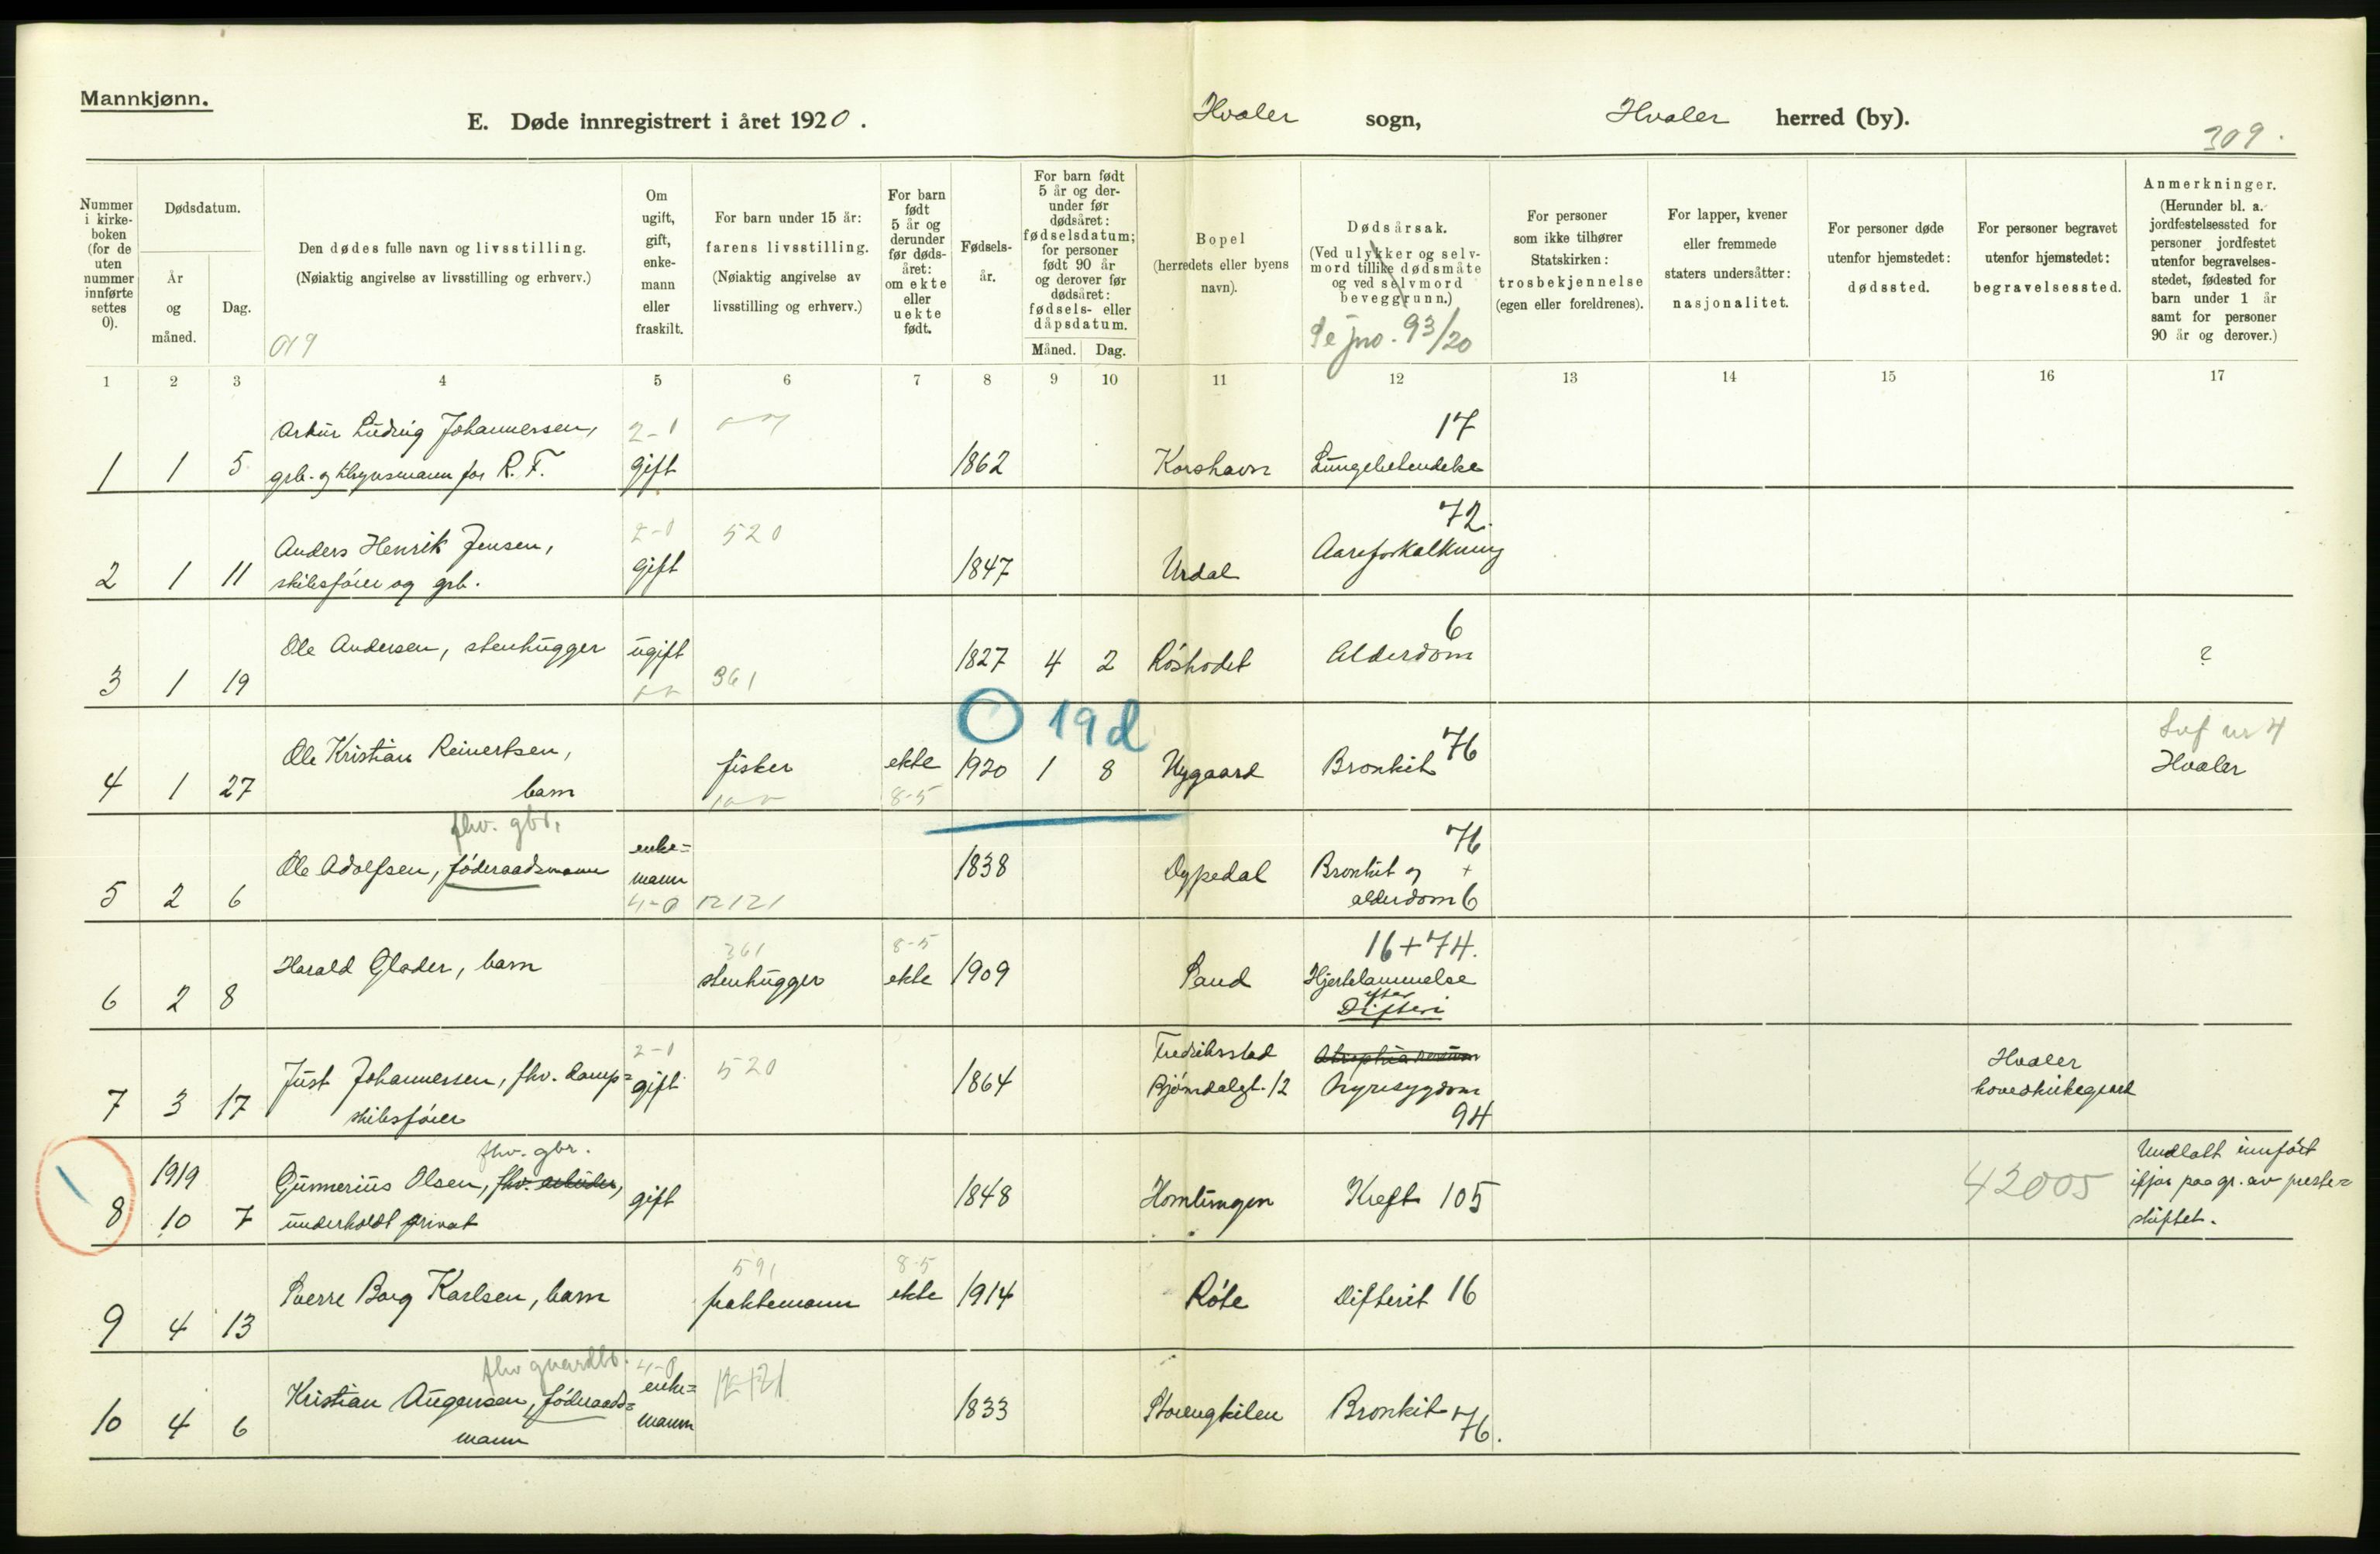 Mannkjønn.
E. Døde innregistrert i året 1920.
Hvaler sogn, Hvaler herred (by).
309.
Nummer i kirke-boken (for de uten nummer innførte settes 0).
Dødsdatum.
År og måned.
Dag.
Den dødes fulle navn og livsstilling.
(Nøiaktig angivelse av livsstilling og erhverv.)
Om ugift, gift, enke-mann eller fraskilt.
For barn under 15 år: farens livsstilling.
(Nøiaktig angivelse av livsstilling og erhverv.)
For barn født 5 år og derunder før døds-året: om ekte eller uekte født.
Fødsels-år.
For barn født 5 år og der-under før dødsåret: fødselsdatum; for personer født 90 år og derover før dødsåret: fødsels- eller dåpsdatum.
Måned. Dag.
Bopel (herredets eller byens navn).
Dødsårsak.
(Ved ulykker og selv-mord tillike dødsmåte og ved selvmord beveggrunn.)
Se jno. 93/20
For personer som ikke tilhører Statskirken: trosbekjennelse (egen eller foreldrenes).
For lapper, kvener eller fremmede staters undersåtter: nasjonalitet.
For personer døde utenfor hjemstedet: dødssted.
For personer begravet utenfor hjemstedet: begravelsessted.
Anmerkninger.
(Herunder bl. a. jordfestelsessted for personer jordfestet utenfor begravelses-stedet, fødested for barn under 1 år samt for personer 90 år og derover.)
1 2 3 4 5 6 7 8 9 10 11 12 13 14 15 16 17
Artur Ludvig Johannersen, 2-1 17
1 1 5 grb. og for R. F. gift 1862 Korshavn Lungebetendelse
2-0 520 72.
Anders Henrik Jensen, Aareforkalkning
2 1 11 skibsfører og grb. gift 1847 Urdal
6
Ole Andersen, stenhugger ugift 1827 4 2 Røshodet Alderdom ?
3 1 19 361
O 19 d
4
Ole Kristian Reinertsen, 76
4 1 27 barn fisker ekte 1920 1 8 Nygaard Bronkit Hvaler
8-5
fhv. gbr. 76
Ole Adolfsen, føderaadsmann enke= 1838 Dypedal Bronkit og +
5 2 6 mann alderdom 6
4-0 12121
361 8-5 16+74.
Harald Glader, barn stenhugger ekte 1909 Sand Hjertelammelse
6 2 8 efter
Difteri
2-1 520 Fredriksstad Hvaler
Just Johannersen, fhv. damp= gift 1864 Bjørndalgt. 12 Nyresygdom hovedkirkegaard
7 3 17 skibsfører 94
1919 fhv. gbr. Undlatt innført
Gunnerius Olsen, fhv. arbeider, gift 1848 Homlungen Kreft 105 42005 ifjor paa gr. av preste=
8 10 7 underholdt privat skiftet.
591 8-5
Sverre Borg Karlsen, barn fraktemann ekte 1914 Røte Difterit 16
9 4 13
fhv gaardbr. 4-0 12121
Kristian Augensen, føderaads= enke= 1833 Storengkilen Bronkit
10 4 6 mann mann 76.